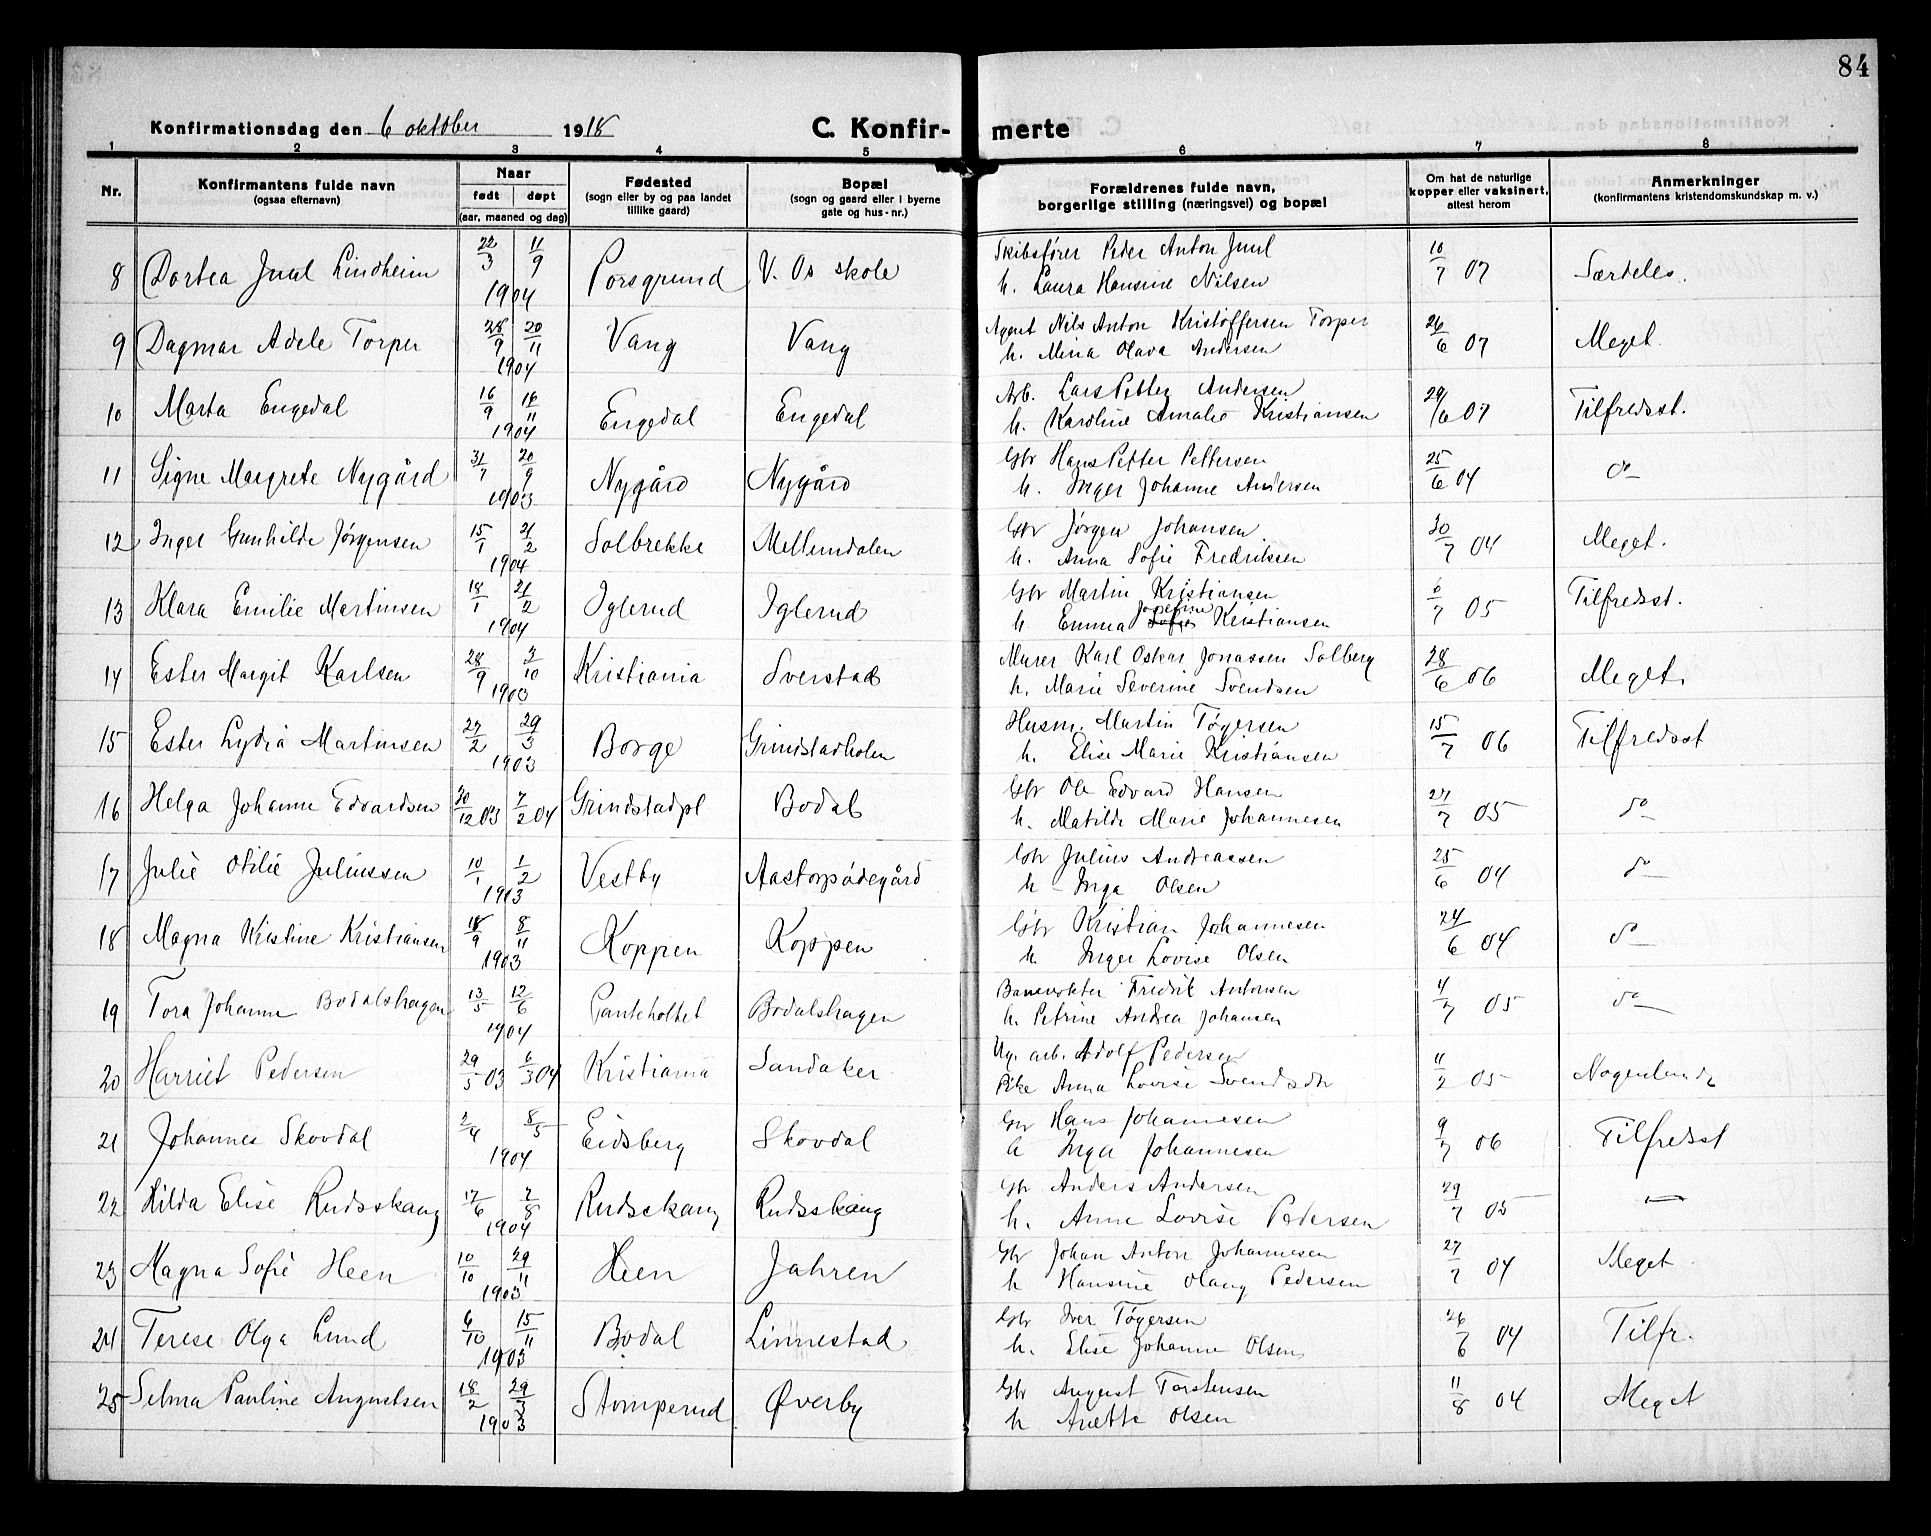 84
Konfirmationsdag den 6 oktober 1918 C. Konfir- merte
1 2 3 4 5 6 7 8
Nr. Konfirmantens fulde navn (ogsaa efternavn) Naar født døpt (aar, maaned og dag) Fødested (sogn eller by og paa landet tillike gaard) Bopæl (sogn og gaard eller i byerne gate og hus-nr.) Forældrenes fulde navn, borgerlige stilling (næringsvei) og bopæl Om hat de naturlige kopper eller vaksinert, attest herom Anmerkninger (konfirmantens kristendomskundskap m. v.)
8 Dortea Juul Lindheim 22/3 11/9 1904 Porsgrund V. Os skole Skibsfører Peder Anton Juul
h. Laura Hansine Nilsen 10/7 07 Særdeles.
9 Dagmar Adele Torper 28/9 20/11 1904 Vang Vang Agent Nils Anton Kristoffersen Torper
h. Mina Olava Andersen 26/6 07 Meget.
10 Marta Engedal 16/9 16/11 1904 Engedal Engedal Arb. Lars Petter Andersen
h. Karoline Amalie Kristiansen 29/6 07 Tilfredsst.
11 Signe Margrete Nygård 31/7 20/9 1903 Nygård Nygård Gbr Hans Petter Pettersen
h. Inger Johanne Andersen 25/6 04 do
12 Inger Gunhilde Jørgensen 15/1 21/2 1904 Solbrekke Mellemdalen Gbr Jørgen Johansen
h. Anna Sofie Fredriksen 30/7 04 Meget.
13 Klara Emilie Martinsen 18/1 21/2 1904 Iglerud Iglerud Gbr Martin Kristiansen
h Emma Josefine Kristiansen 6/7 05 Tilfredsst.
14 Ester Margit Karlsen 28/9 3/10 1903 Kristiania Sverstad Murer Karl Oskar Jonassen Solberg
h. Marie Severine Svendsen 28/6 06 Meget.
15 Ester Lydia Martinsen 27/2 29/3 1903 Borge Grindstadholen Husm. Martin Tøgersen
h. Elise Marie Kristiansen 15/7 06 Tilfredsst
16 Helga Johanne Edvardsen 30/12 03 7/2 04 Grindstadpl Bodal Gbr Ole Edvard Hansen
h. Matilde Marie Johannesen 27/7 05 do
17 Julie Otilie Juliussen 10/1 1/2 1903 Vestby Aastorpødegård Gbr Julius Andreassen
h - Inga Olsen 25/6 04 do
18 Magna Kristine Kristiansen 18/9 8/11 1903 Koppen Koppen Gbr Kristian Johannesen
h Inger Lovise Olsen 24/6 04 do
19 Tora Johanne Bodalshagen 13/5 12/6 1904 Panteholtet Bodalshagen Banevokter Fredrik Antonsen
h. Petrine Andrea Johansen 4/7 05 do
20 Harriet Pedersen 29/5 03 6/3 04 Kristiania Sandaker Ug. arb. Adolf Pedersen
Pike Anna Lovise Svendsdtr 11/2 05
21 Johannes Skovdal 2/4 8/5 1904 Eidsberg Skovdal Gbr Hans Johannesen
h Inga Johannesen 9/7 06 Tilfredsst
22 Hilda Elise Rudsskaug 17/6 7/8 1904 Rudsskaug Rudsskaug Gbr Anders Andersen
h. Anne Lovise Pedersen 29/7 05 —
23 Magna Sofie Heen 10/10 29/11 1903 Heen Jahren Gbr Johan Anton Johannesen
h Hansine Olaug Pedersen 27/7 04 Meget
24 Terese Olga Lund 6/10 15/11 1903 Bodal Linnestad Gbr Iver Tøgersen
h. Elise Johanne Olsen 26/6 04 Tilfr.
25 Selma Pauline Augustsen 18/2 29/3 1903 Stomperud Øverby Gbr August Torstensen
h Anette Olsen 11/8 04 Meget